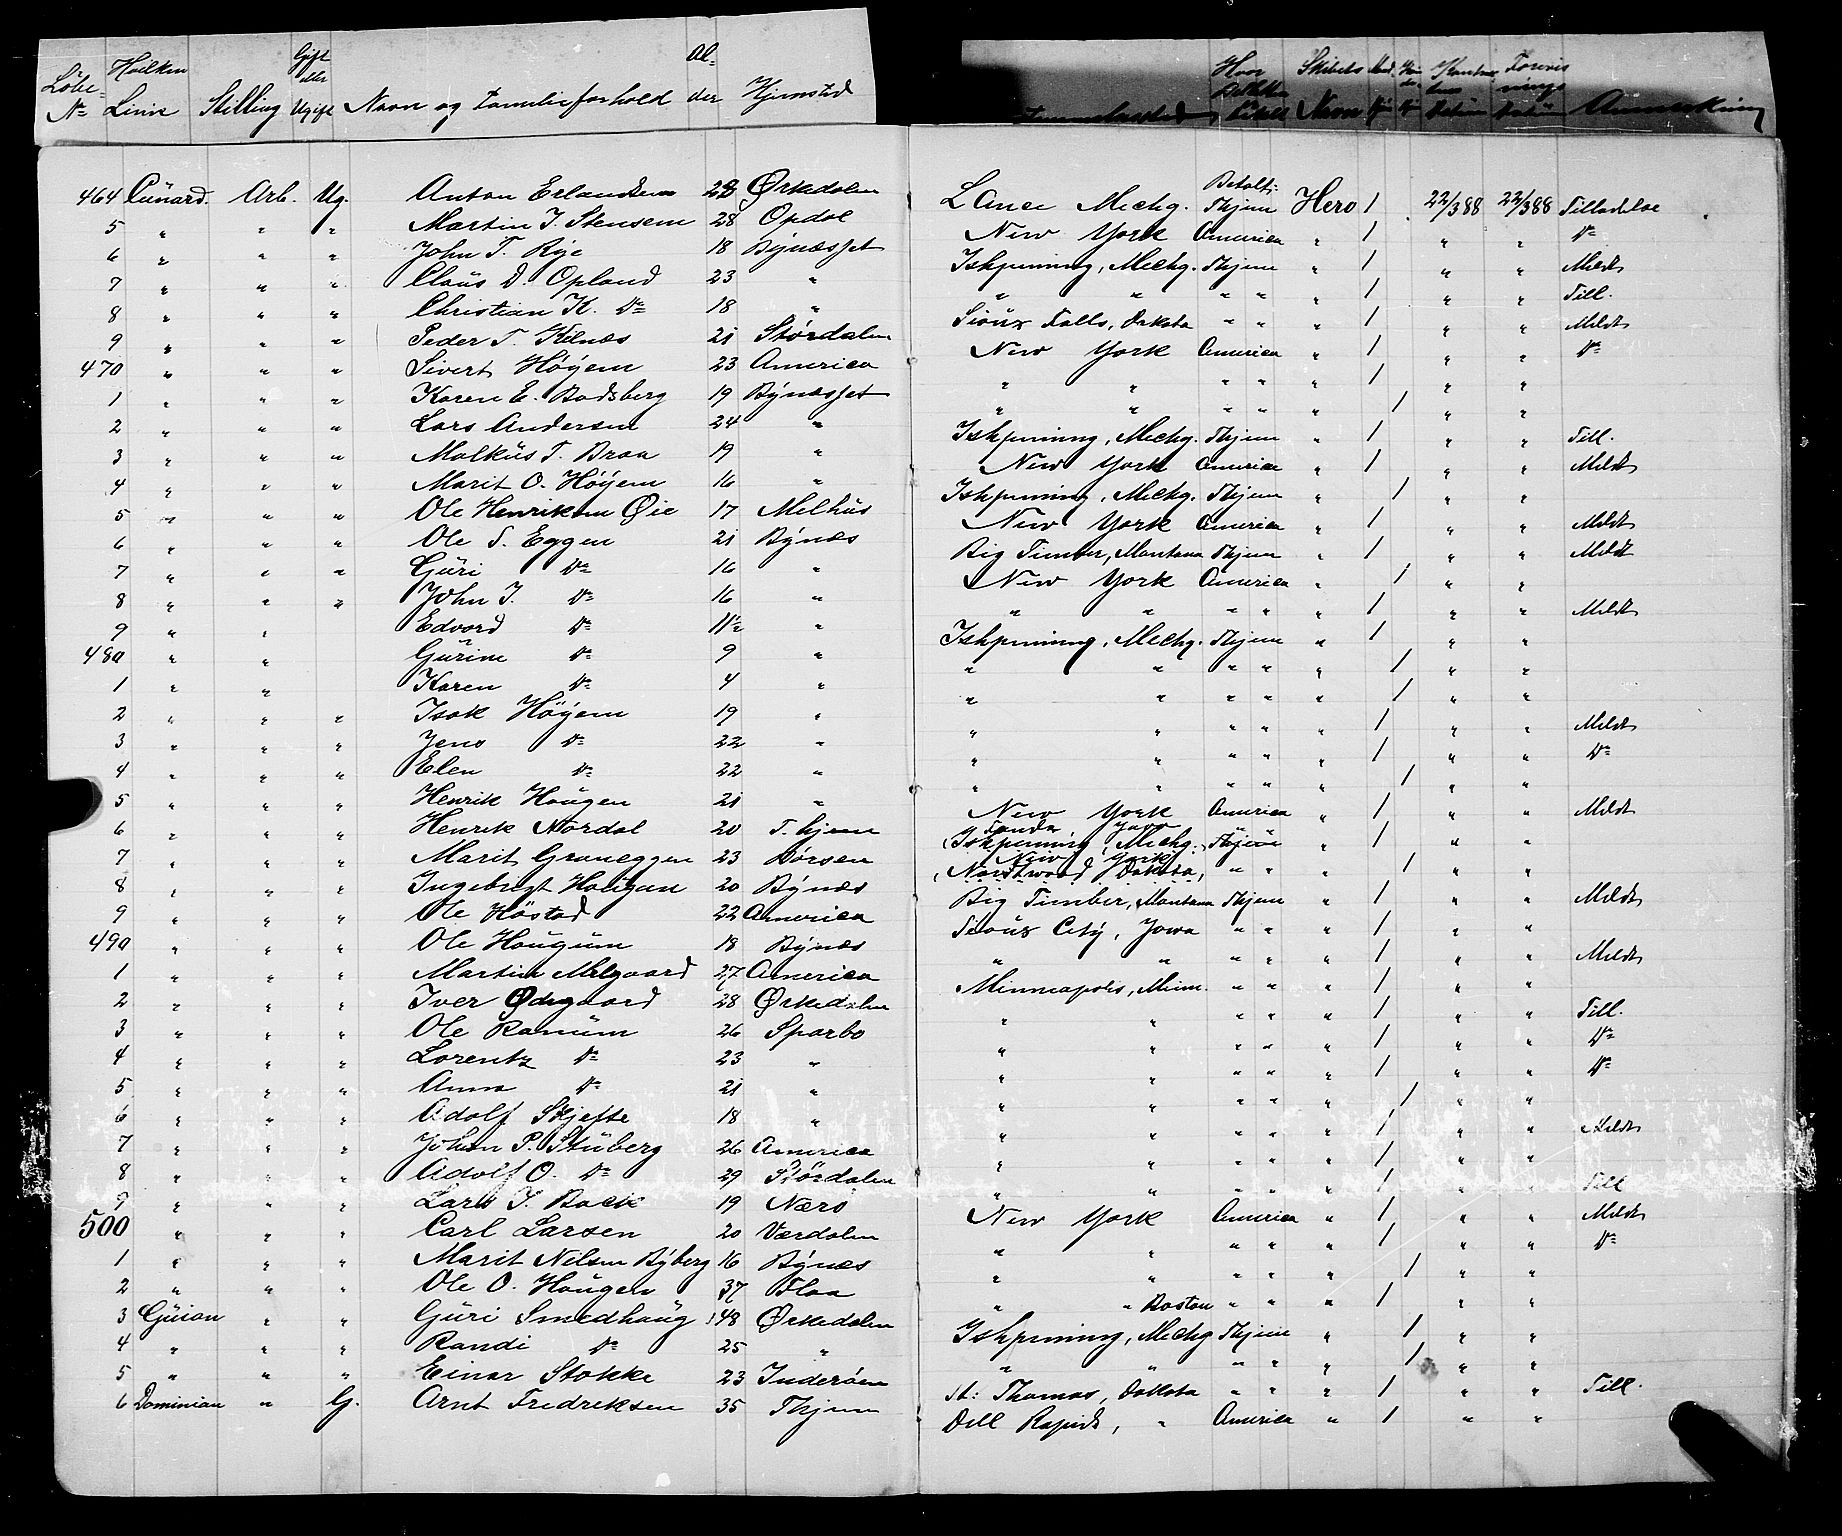 Löbe- No Hvilken Linie Stilling Gift eller Ugift Navn og Familieforhold Al- der Hjemsted Hvor Billetten er betalt Skibets Navn Anmerkning
464 Cunard. Arb. Ug. Anton Erlandsen 28 Ørkedalen L'Ance Mechg. Betalt: Thjem Hero 1 22/3 88 22/3 88 Tilladelse
5 " " " Martin J. Stensem 28 Opdal New York America " 1 " " Do
6 " " " John T. Rye 18 Bynæsset Ishpeming, Mechg. Thjem " 1 " " Meldt
7 " " " Claus D. Opland 23 " " " " " " 1 " " Till.
8 " " " Christian K. Do 18 " Sioux Falls, Dakota " " " 1 " " Meldt
9 " " " Peder T. Kelnæs 21 Størdalen New York America " 1 " " Do
470 " " " Sivert Höyem 23 America " " " " " 1 " "
1 " " " Karen E. Badsberg 19 Bynæsset " " " " " 1 " "
2 " " " Lars Andersen 24 " Ishpeming, Mechg. Thjem " 1 " " Till.
3 " " " Malkus T. Braa 19 " New York America " 1 " " Meldt
4 " " " Marit O. Höyem 16 " Ishpeming, Mechg. Thjem " 1 " "
5 " " " Ole Henriksen Øie 17 Melhus New York America " 1 " " Meldt
6 " " " Ole S. Eggen 21 Bynæs Big Timber, Montana Thjem " 1 " " Meldt
7 " " " Guri Do 16 " New York America " 1 " "
8 " " " John J. Do 16 " " " " " " 1 " " Meldt
9 " " Edvard Do 11½ " Ishpeming, Mechg. Thjem " 1 " "
480 " " Gurine Do 9 " " " " " " 1 " "
1 " " Karen Do 4 " " " " " " 1 " "
2 " " " Isak Höyem 19 " " " " " " 1 " " Meldt
3 " " " Jens Do 22 " " " " " " 1 " " Do
4 " " " Elen Do 22 " " " " " " 1 " "
5 " " " Henrik Haugen 21 " New York America " 1 " " Meldt
6 " " " Henrik Nordal 20 T. hjem (Ishpeming, Mechg. " 1 " "
7 " " " Marit Graneggen 23 Børsen New York (Northwood, Dakota, " " " 1 " "
8 " " " Ingebrigt Haugan 20 Bynæs Big Timber, Montana Thjem " 1 " " Meldt
9 " " " Ole Höstad 22 America Sioux City, Jowa " " " 1 " "
490 " " " Ole Haugum 18 Bynæs " " " " " 1 " " Meldt
1 " " " Martin Melgaard 27 America Minneapolis, Minn. " " " 1 " "
2 " " " Iver Ødegaard 28 Ørkedalen " " " " " 1 " " Till.
3 " " " Ole Ranum 26 Sparbo " " " " " 1 " " Do
4 " " " Lorentz Do 23 " " " " " " 1 " " Do
5 " " " Anna Do 21 " " " " " " 1 " "
6 " " " Adolf Skjefte 18 " " " " " " 1 " " Meldt
7 " " " Johan P. Stuberg 26 America " " " " " 1 " "
8 " " " Adolf O. Do 29 Størdalen " " " " " 1 " " Till
9 " " " Lars J. Back 19 Nærö New York America " 1 " " Meldt
500 " " " Carl Larsen 20 Værdalen " " " " " 1 " " Do
1 " " " Marit Nilsen Byberg 16 Bynæs " " " " " 1 " "
2 " " " Ole O. Haugen 37 Flaa " " Boston " " " 1 " "
3 Guion " " Guri Smedhaug 48 Ørkedalen Ishpeming, Mechg Thjem " 1 " "
4 " " " Randi Do 25 " " " " " " 1 " "
5 " " " Einar Stokke 23 Inderøen St: Thomas, Dakota " " " 1 " " Till.
6 Dominian " G. Arnt Fredriksen 35 Thjem Dell Rapids, " America " 1 " "